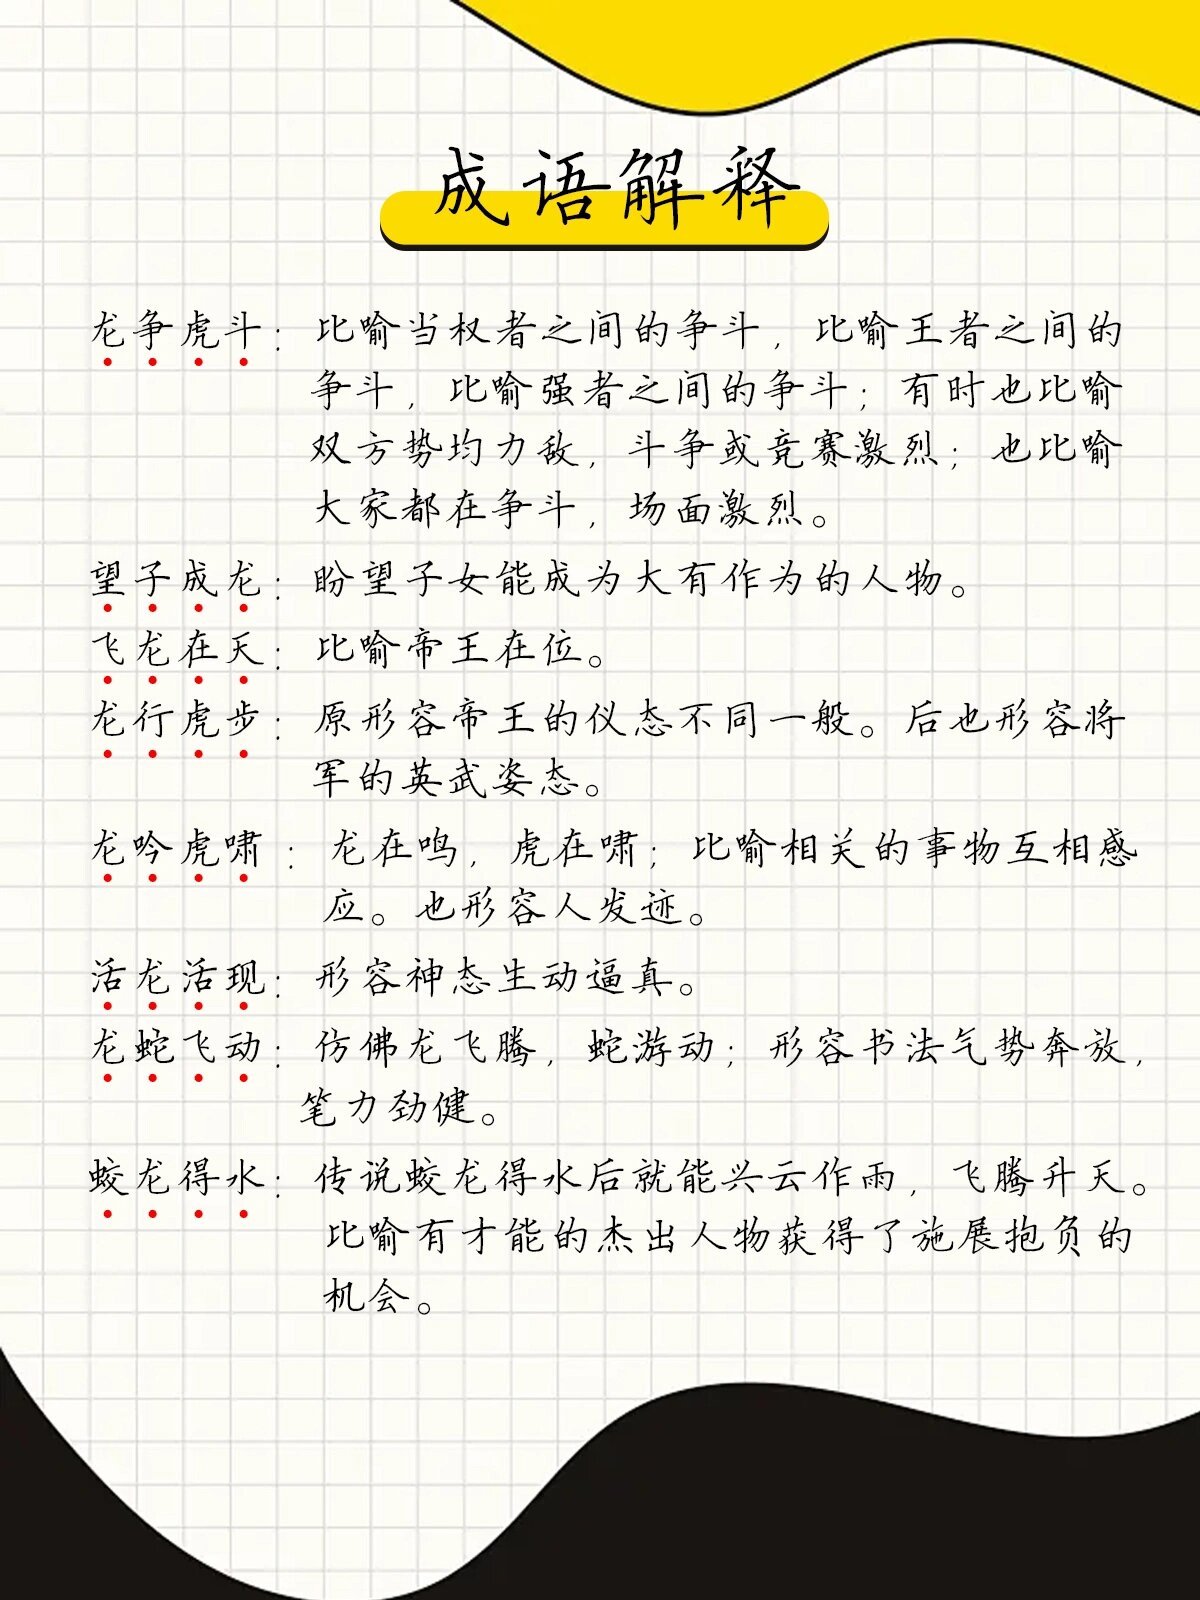 成语解释
龙争虎斗：比喻当权者之间的争斗，比喻王者之间的
争斗，比喻强者之间的争斗；有时也比喻
双方势均力敌，斗争或竞赛激烈；也比喻
大家都在争斗，场面激烈。
望子成龙：盼望子女能成为大有作为的人物。
飞龙在天：比喻帝王在位。
龙行虎步：原形容帝王的仪态不同一般。后也形容将
军的英武姿态。
龙吟虎啸：龙在鸣，虎在啸；比喻相关的事物互相感
应。也形容人发迹。
活龙活现：形容神态生动逼真。
龙蛇飞动：仿佛龙飞腾，蛇游动；形容书法气势奔放，
笔力劲健。
蛟龙得水：传说蛟龙得水后就能兴云作雨，飞腾升天。
比喻有才能的杰出人物获得了施展抱负的
机会。